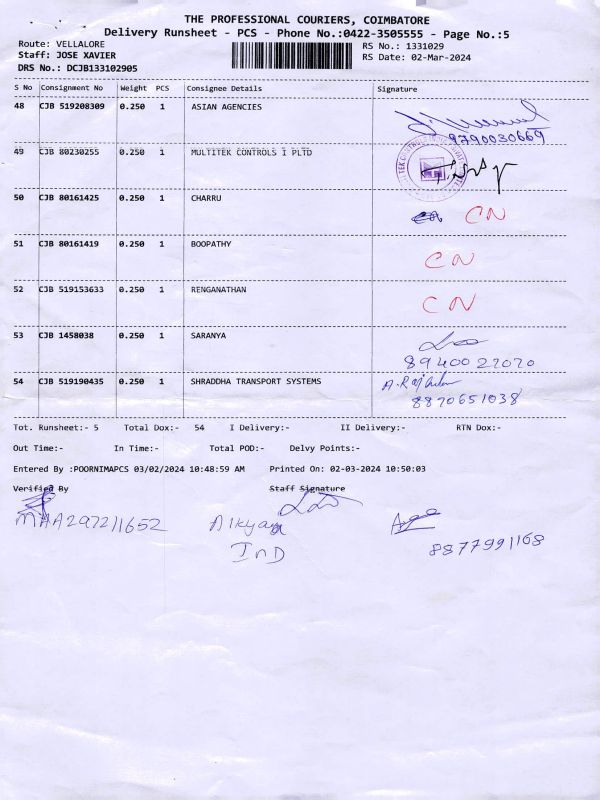 THE PROFESSIONAL COURIERS, COIMBATORE
Delivery Runsheet - PCS - Phone No.:0422-3505555 - Page No.:5
Route: VELLALORE RS No.: 1331029
Staff: JOSE XAVIER RS Date: 02-Mar-2024
DRS No.: DCJB133102905
S No Consignment No Weight PCS Consignee Details Signature
48 CJB 519208309 0.250 1 ASIAN AGENCIES
9790030669
49 CJB 80230255 0.250 1 MULTITEK CONTROLS I PLTD
50 CJB 80161425 0.250 1 CHARRU CN
51 CJB 80161419 0.250 1 BOOPATHY CN
52 CJB 519153633 0.250 1 RENGANATHAN CN
53 CJB 1458038 0.250 1 SARANYA
8940027070
54 CJB 519190435 0.250 1 SHRADDHA TRANSPORT SYSTEMS
8870651038
Tot. Runsheet:- 5 Total Dox:- 54 I Delivery:- II Delivery:- RTN Dox:-
Out Time:- In Time:- Total POD:- Delvy Points:-
Entered By :POORNIMAPCS 03/02/2024 10:48:59 AM Printed On: 02-03-2024 10:50:03
Verified By Staff Signature
MAA297211652
IND
8877991168